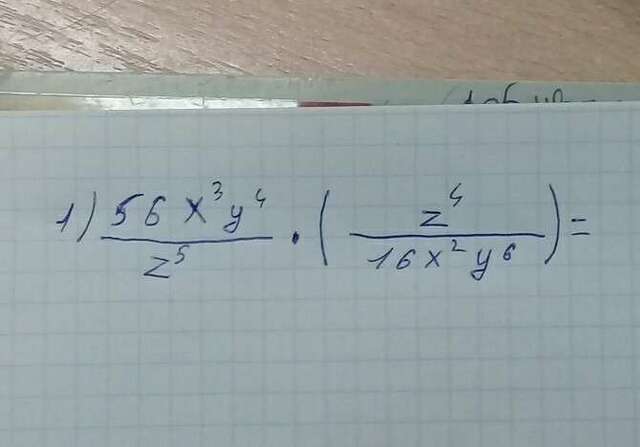 1) 56x³y⁴/z⁵ · (z⁴/16x²y⁶) =